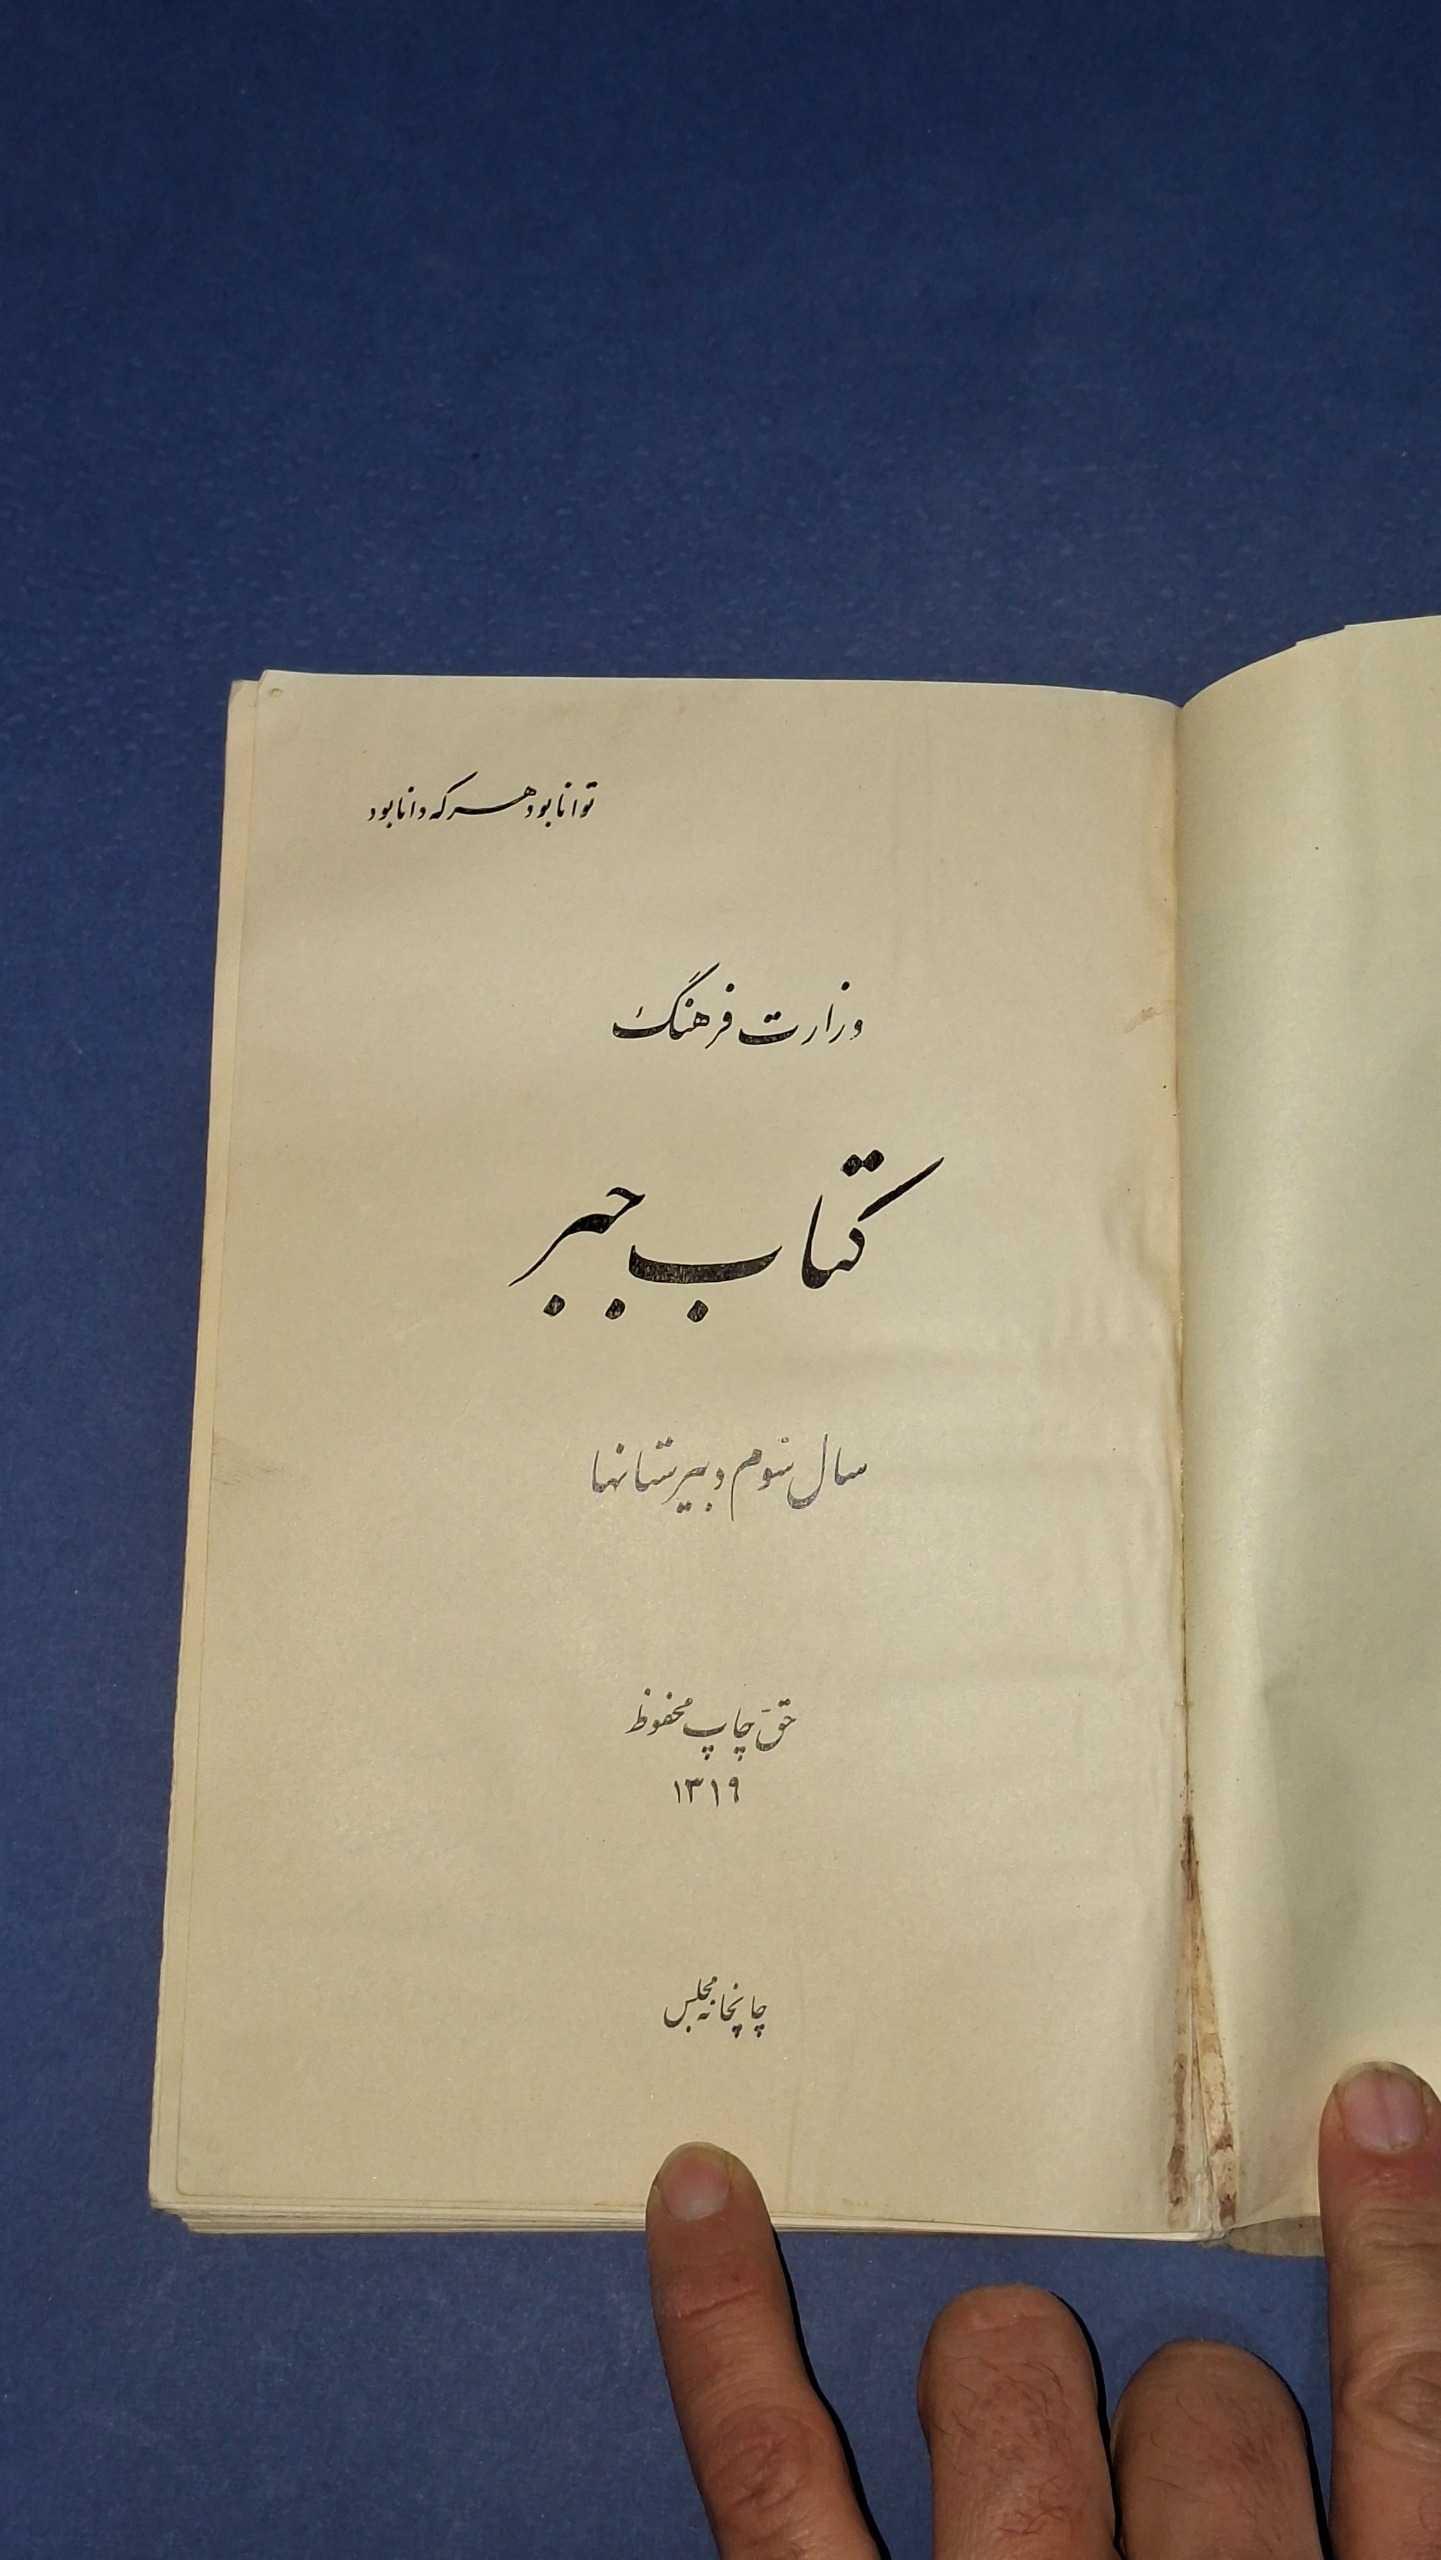 توانا بود هر که دانا بود
وزارت فرهنگ
کتاب جبر
سال سوم دبیرستانها
حق چاپ محفوظ
۱۳۱۹
چاپخانه مجلس